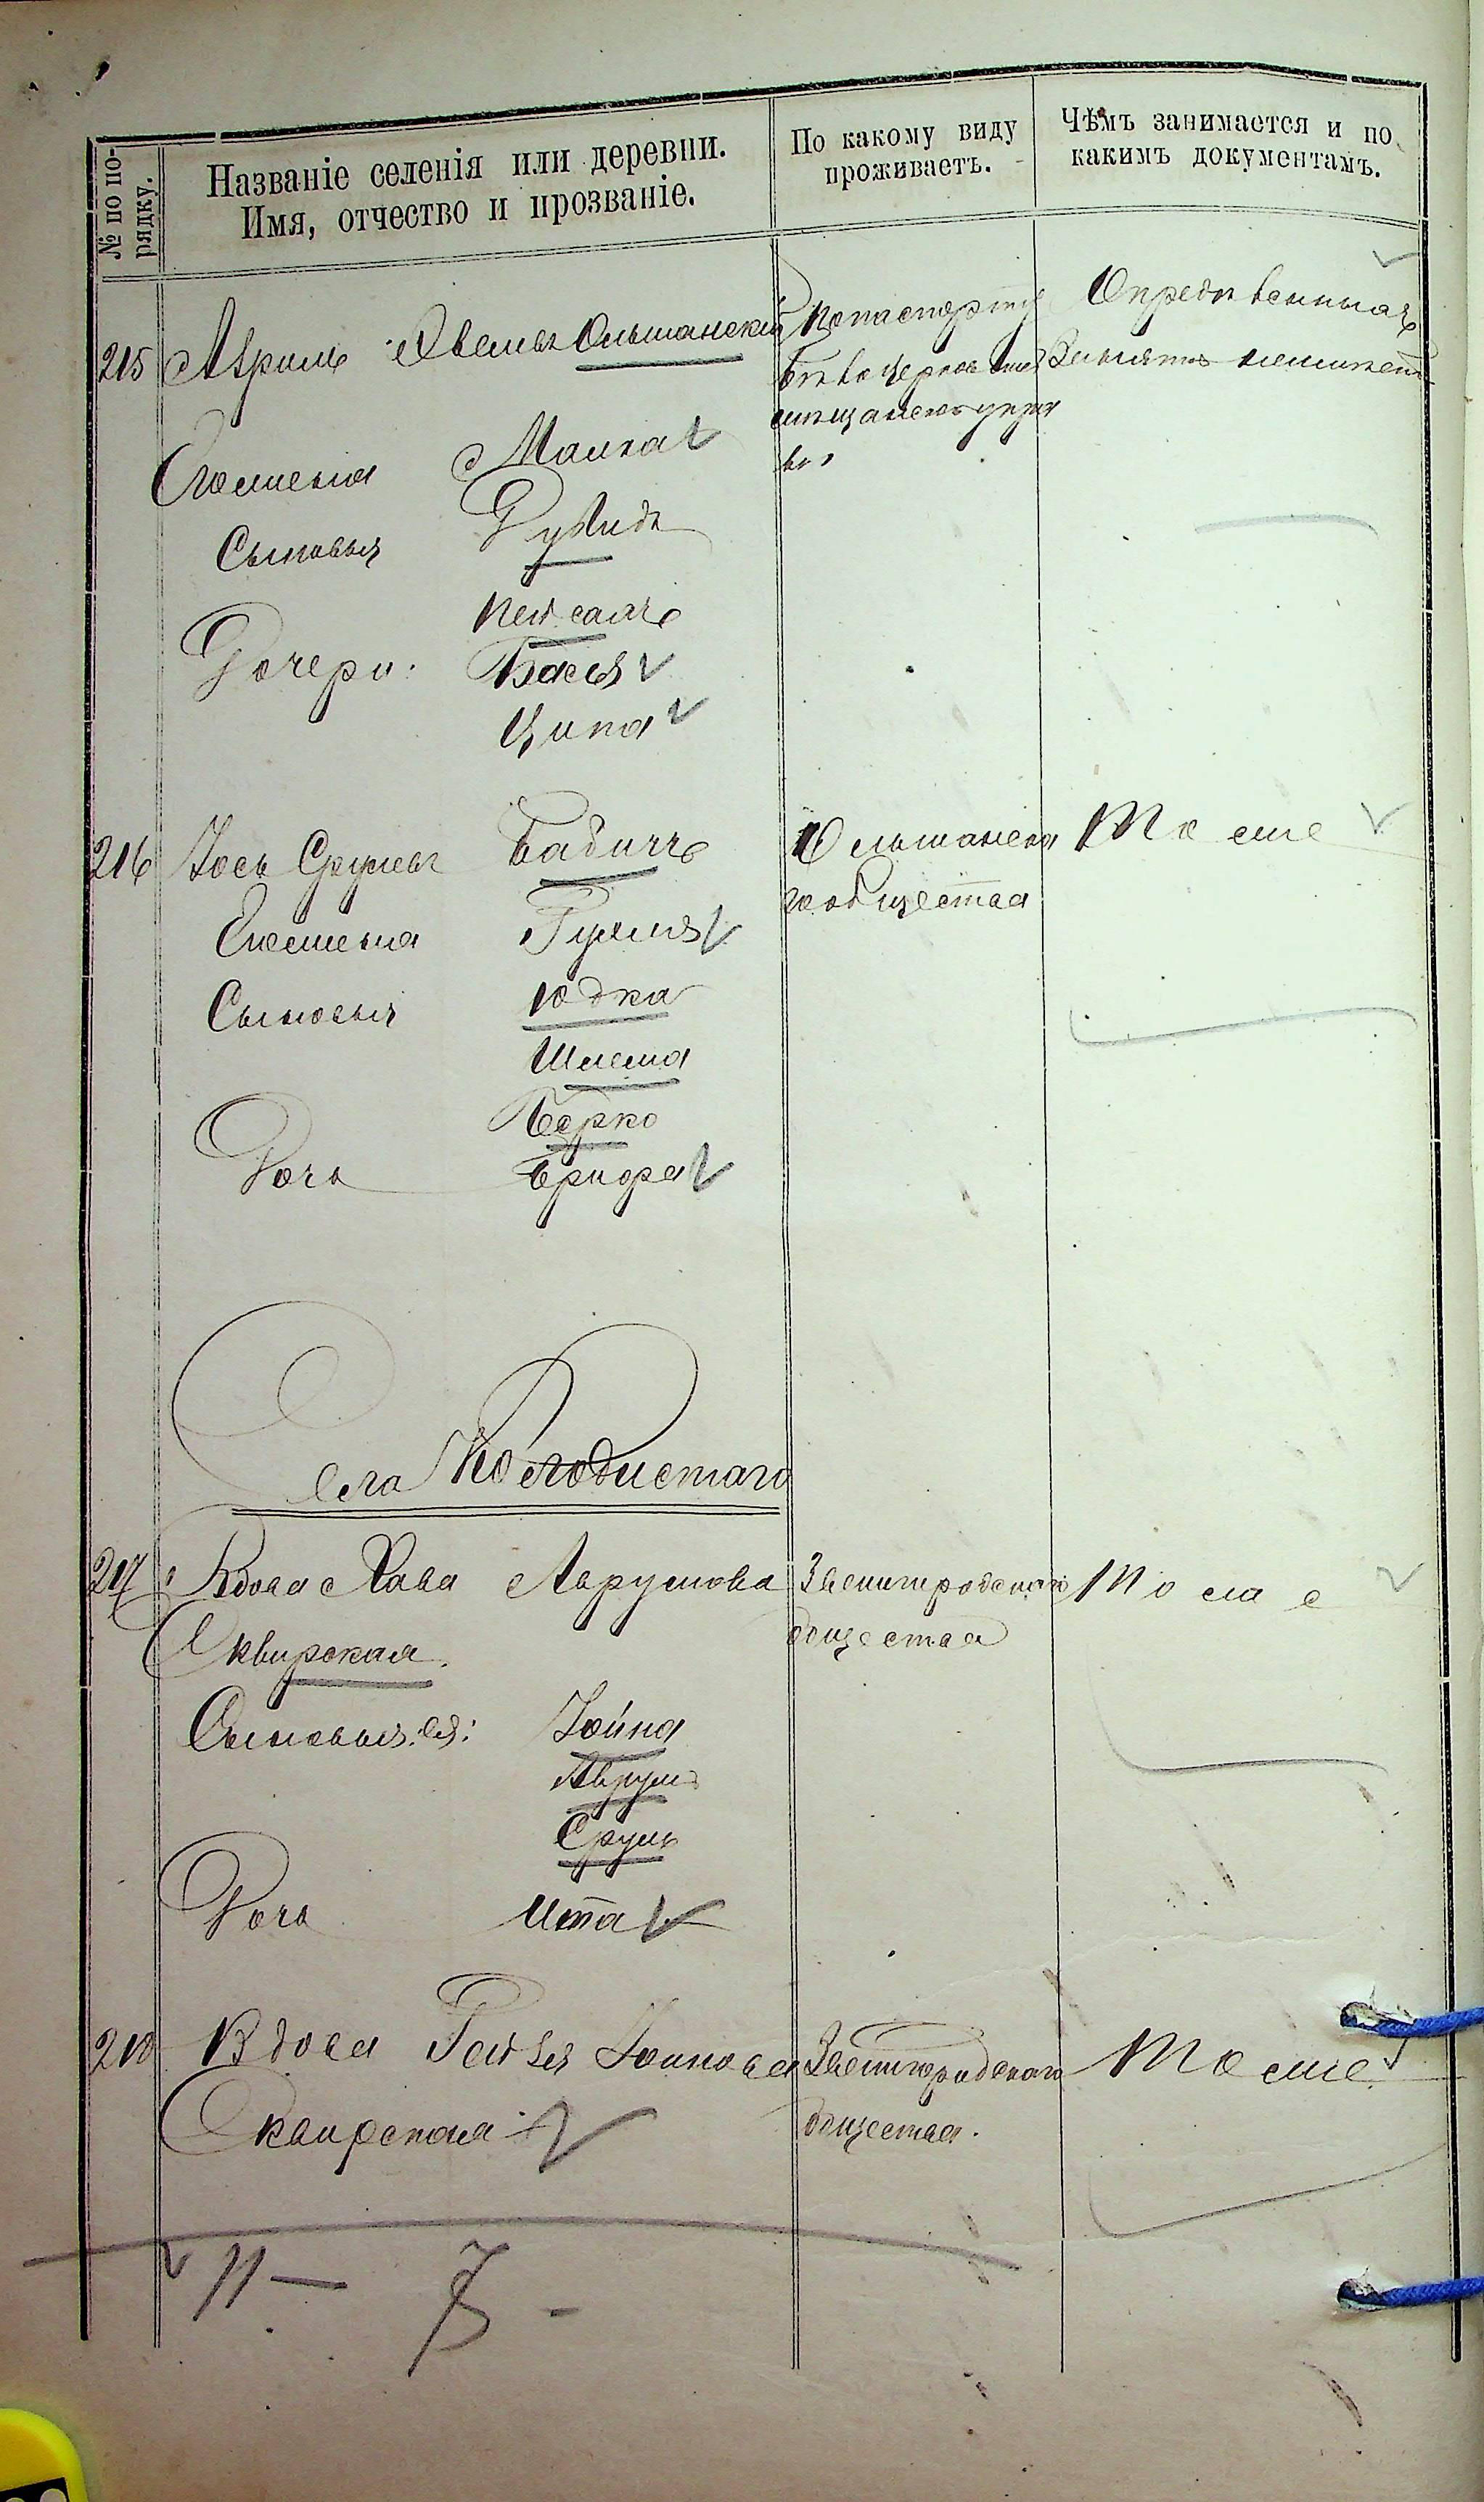 № по по-
рядку.
Названіе селенія или деревни.
Имя, отчество и прозваніе.
По какому виду
проживаетъ.
Чѣмъ занимается и по
какимъ документамъ.
215 Аврумъ Ольшанскій
По паспорту
Бѣлоцерковской
мѣщанской упра
вы
Опредѣленныхъ
Занятій неимѣетъ
Его жена Малка
Сыновья Дувидъ
Пейсахъ
Дочери: Бася
Ципа
216 Іось Срулевъ Бабичъ
Ольшанска
го общества
То же
Его жена
Сыновья Юдка
Шлема
Берко
Дочь
Села Колодистаго
217 Вдова Хава Аврумова
Сквирская.
Звенигородскаго
общества
То же
Сыновья ея: Іойна
Аврумъ
Сруль
Дочь Ита
218 Вдова Гейзя
Сквирская
Звенигородскаго
общества.
То же
11 — 7 -